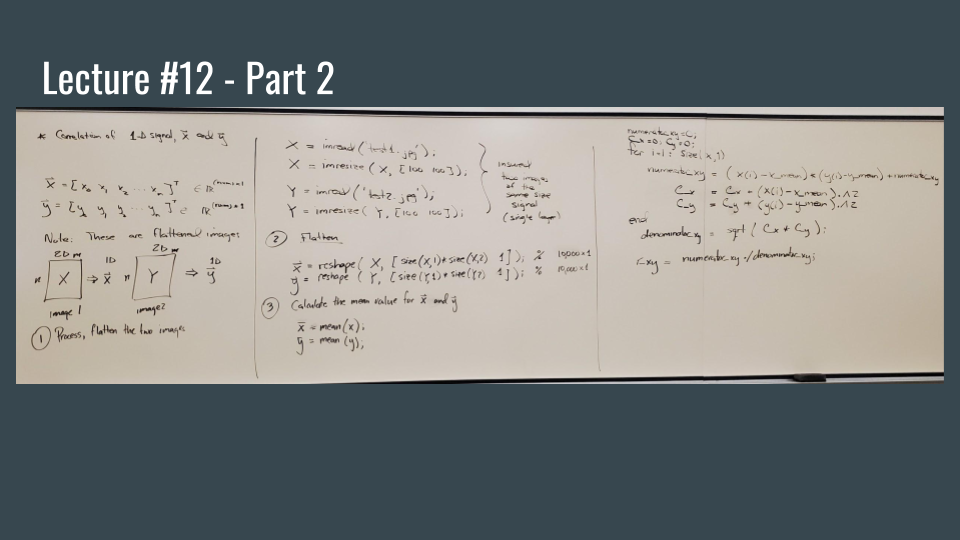 Lecture #12 - Part 2
* Correlation of 1-D signal, x⃗ and y⃗
x⃗ = [x₀ x₁ x₂ ... xₘ]ᵀ ∈ ℝ
y⃗ = [y₀ y₁ y₂ ... yₘ]ᵀ ∈ ℝ
Note: These are flattened images
2D 1D 2D 1D
n X ⇒ x⃗ n Y ⇒ y⃗
image 1 image 2
① Process, flatten the two images
X = imread('test1.jpg');
X = imresize(X, [100 100]);
Y = imread('test2.jpg');
Y = imresize(Y, [100 100]);
two images
of the
same size
signal
(single layer)
② Flatten
x⃗ = reshape( X, [size(X,1)*size(X,2) 1]); % 10,000×1
y⃗ = reshape( Y, [size(Y,1)*size(Y,2) 1]); % 10,000×1
③ Calculate the mean value for x⃗ and y⃗
x̄ = mean(x);
ȳ = mean(y);
numeratorxy=0;
Cx=0; Cy=0;
for i=1: size(x,1)
numeratorxy = (x(i)-x_mean)*(y(i)-y_mean)+numeratorxy
Cx = Cx + (x(i)-x_mean).^2
Cy = Cy + (y(i)-y_mean).^2
end
denominatorxy = sqrt(Cx*Cy);
rxy = numeratorxy./denominatorxy;